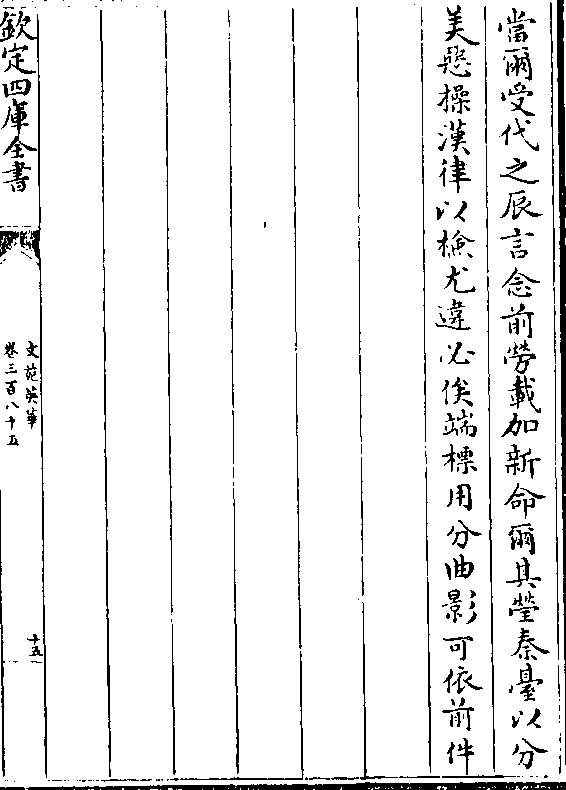 當爾受代之辰言念前勞載加新命爾其瑩秦臺以分
美惡操漢律以檢尤違必俟端標用分曲影可依前件
欽定四庫全書
文苑英華
卷三百八十五
十五